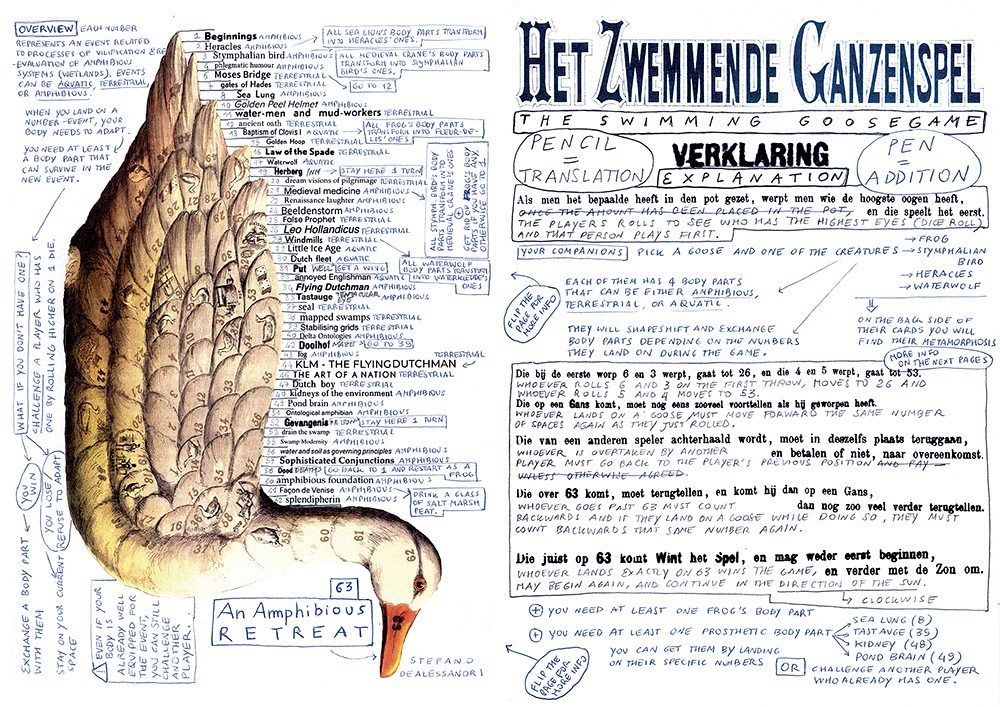 OVERVIEW EACH NUMBER
REPRESENTS AN EVENT RELATED
TO PROCESSES OF VILIFICATION &RE
-EVALUATION OF AMPHIBIOUS
SYSTEMS (WETLANDS). EVENTS
CAN BE AQUATIC, TERRESTRIAL
OR AMPHIBIOUS.
WHEN YOU LAND ON A
NUMBER-EVENT, YOUR
BODY NEEDS TO ADAPT.
YOU NEED AT LEAST
A BODY PART THAT
CAN SURVIVE IN THE
NEW EVENT.
WHAT IF YOU DON'T HAVE ONE?
CHALLENGE A PLAYER WHO HAS
ONE BY ROLLING HIGHER ON 1 DIE.
YOU WIN
EXCHANGE A BODY PART
WITH THEM
YOU LOSE / REFUSE TO ADAPT
STAY ON YOUR CURRENT
SPACE
EVEN IF YOUR
BODY IS
ALREADY WELL
EQUIPPED FOR
THE EVENT,
YOU CAN STILL
CHALLENGE
ANOTHER
PLAYER...
1 Beginnings AMPHIBIOUS
ALL SEA LION'S BODY PARTS TRANSFORM
INTO HERACLES' ONES.
2 Heracles AMPHIBIOUS
3 Stymphalian bird AMPHIBIOUS
ALL MEDIEVAL CRANE'S BODY PARTS
TRANSFORM INTO STYMPHALIAN
BIRD'S ONES.
4 phlegmatic humour AMPHIBIOUS
Moses Bridge TERRESTRIAL
GO TO 12
gates of Hades TERRESTRIAL
8 Sea Lung AMPHIBIOUS
10 Golden Peel Helmet AMPHIBIOUS
11 water-men and mud-workers TERRESTRIAL
12 ancient oath TERRESTRIAL
13 Baptism of Clovis I AQUATIC
ALL FROG'S BODY PARTS
TRANSFORM INTO FLEUR-DE-
LIS' ONES
15 Golden Hoop TERRESTRIAL
16 Law of the Spade TERRESTRIAL
17 Waterwolf AQUATIC
19 Herberg INN
STAY HERE 1 TURN
20 dream visions of pilgrimage TERRESTRIAL
21 Medieval medicine AMPHIBIOUS
22 Renaissance laughter AMPHIBIOUS
24 Beeldenstorm AMPHIBIOUS
25 False Prophet TERRESTRIAL
26 Leo Hollandicus TERRESTRIAL
Windmills TERRESTRIAL
Little Ice Age AQUATIC
30 Dutch fleet AQUATIC
31 Put WELL GET A WING
annoyed Englishman AQUATIC
34 Flying Dutchman AMPHIBIOUS
35 Tastauge AMPHIBIOUS
37 seal TERRESTRIAL
mapped swamps TERRESTRIAL
Stabilising grids TERRESTRIAL
40 Delta Ontologies AMPHIBIOUS
42 Doolhof MAZE GO TO 39
43 fog AMPHIBIOUS
44 KLM - THE FLYING DUTCHMAN TERRESTRIAL
46 THE ART OF A NATION TERRESTRIAL
47 Dutch boy TERRESTRIAL
48 kidneys of the environment AMPHIBIOUS
49 Pond brain AMPHIBIOUS
51 Ontological amphibian AMPHIBIOUS
52 Gevangenis PRISON STAY HERE 1 TURN
53 drain the swamp TERRESTRIAL
55 Swamp Modernity AMPHIBIOUS
56 water and soil as governing principles AMPHIBIOUS
57 Sophisticated Conjunctions AMPHIBIOUS
58 Dood DEATH GO BACK TO 1 AND RESTART AS A
FROG
60 amphibious foundation AMPHIBIOUS
61 Façon de Venise AMPHIBIOUS
62 splendipherin AMPHIBIOUS
DRINK A GLASS
OF SALT MARSH
PEAT.
ALL STYMPH. BIRD'S BODY
PARTS TRANSFORM INTO
MEDIEVAL CRANE'S ONES
+
GET RID OF FROG'S BODY
PARTS IF YOU HAVE ANY.
OTHERWISE GO TO 1.
ALL WATERWOLF
BODY PARTS TRANSFORM
INTO WATERLELIE'S
ONES.
59
60
61
62
63
63
An Amphibious
RETREAT
STEFANO
DEALESSANDRI
HET ZWEMMENDE GANZENSPEL
THE SWIMMING GOOSEGAME
PENCIL
=
TRANSLATION
VERKLARING
EXPLANATION
PEN
=
ADDITION
Als men het bepaalde heeft in den pot gezet, werpt men wie de hoogste oogen heeft,
ONCE THE AMOUNT HAS BEEN PLACED IN THE POT, en die speelt het eerst.
THE PLAYERS ROLLS TO SEE WHO HAS THE HIGHEST EYES (DICE ROLL)
AND THAT PERSON PLAYS FIRST.
YOUR COMPANIONS PICK A GOOSE AND ONE OF THE CREATURES
FROG
STYMPHALIAN
BIRD
HERACLES
WATERWOLF
EACH OF THEM HAS 4 BODY PARTS
THAT CAN BE EITHER AMPHIBIOUS,
TERRESTRIAL, OR AQUATIC.
FLIP THE
PAGE FOR
MORE INFO
THEY WILL SHAPESHIFT AND EXCHANGE
BODY PARTS DEPENDING ON THE NUMBERS
THEY LAND ON DURING THE GAME.
ON THE BACK SIDE OF
THEIR CARDS YOU WILL
FIND THEIR METAMORPHOSIS
MORE INFO
ON THE NEXT PAGES
Die bij de eerste worp 6 en 3 werpt, gaat tot 26, en die 4 en 5 werpt, gaat tot 53.
WHOEVER ROLLS 6 AND 3 ON THE FIRST THROW, MOVES TO 26 AND
WHOEVER ROLLS 5 AND 4 MOVES TO 53.
Die op een Gans komt, moet nog eens zooveel voorttellen als hij geworpen heeft.
WHOEVER LANDS ON A GOOSE MUST MOVE FORWARD THE SAME NUMBER
OF SPACES AGAIN AS THEY JUST ROLLED.
Die van een anderen speler achterhaald wordt, moet in deszelfs plaats teruggaan,
WHOEVER IS OVERTAKEN BY ANOTHER en betalen of niet, naar overeenkomst.
PLAYER MUST GO BACK TO THE PLAYER'S PREVIOUS POSITION AND PAY
UNLESS OTHERWISE AGREED.
Die over 63 komt, moet terugtellen, en komt hij dan op een Gans,
WHOEVER GOES PAST 63 MUST COUNT dan nog zoo veel verder terugtellen.
BACKWARDS AND IF THEY LAND ON A GOOSE WHILE DOING SO, THEY MUST
COUNT BACKWARDS THAT SAME NUMBER AGAIN.
Die juist op 63 komt Wint het Spel, en mag weder eerst beginnen,
WHOEVER LANDS EXACTLY ON 63 WINS THE GAME, en verder met de Zon om.
MAY BEGIN AGAIN, AND CONTINUE IN THE DIRECTION OF THE SUN.
CLOCKWISE
+ YOU NEED AT LEAST ONE FROG'S BODY PART
+ YOU NEED AT LEAST ONE PROSTHETIC BODY PART
SEA LUNG (8)
TASTAUGE (35)
KIDNEY (48)
POND BRAIN (49)
YOU CAN GET THEM BY LANDING
ON THEIR SPECIFIC NUMBERS
OR CHALLENGE ANOTHER PLAYER
WHO ALREADY HAS ONE.
FLIP THE
PAGE FOR
MORE INFO